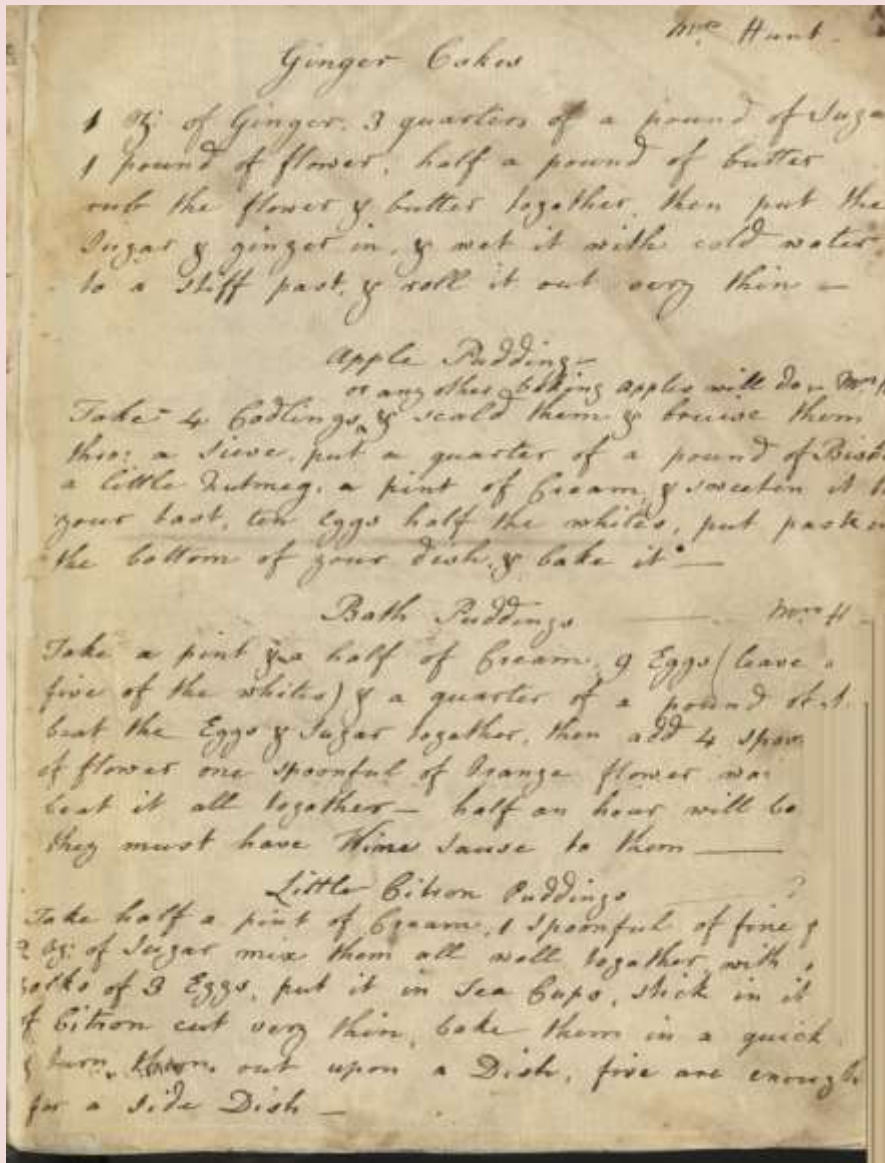 Mrs Hunt.
Ginger Cakes
1 oz: of Ginger. 3 quarters of a pound of Suga
1 pound of flower, half a pound of butter
rub the flower & butter together, then put the
Sugar & ginger in, & wet it with cold water
to a stiff past, & roll it out very thin —
Apple Pudding —
or any other baking apples will do — Mrs
Take 4 Codlings, & scald them & bruise them
thro: a sieve, put a quarter of a pound of
a little Nutmeg, a pint of Cream, & sweeten it
your tast, ten Eggs half the whites, put paste
the bottom of your dish, & bake it —
Bath Puddings — Mrs H
Take a pint & a half of Cream, 9 Eggs (leave
five of the whites) & a quarter of a pound of
beat the Eggs & Sugar together, then add 4 spoon
of flower one spoonful of Orange flower wa
beat it all together — half an hour will
they must have Wine Sause to them —
Little Citron Puddings
Take half a pint of Cream, 1 spoonful of fine
2 oz: of Sugar mix them all well together, with
yolks of 3 Eggs, put it in Tea Cups, stick in it
of Citron cut very thin, bake them in a quick
& turn them out upon a Dish, five are enough
for a side Dish —